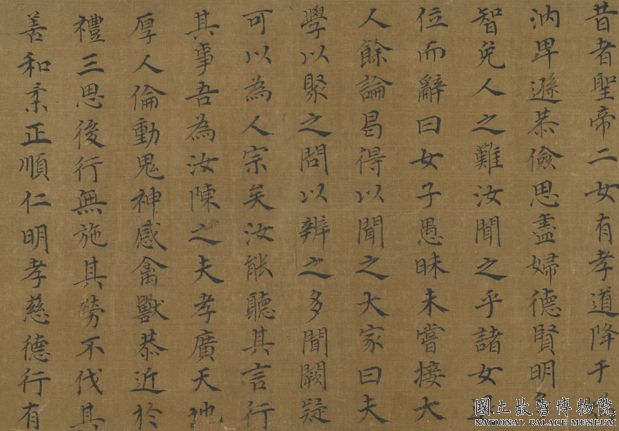 昔者聖帝二女有孝道降于
汭卑遜恭儉思盡婦德賢明多
智免人之難汝聞之乎諸女
位而辭曰女子愚昧未嘗接大
人餘論曷得以聞之大家曰夫
學以聚之問以辨之多聞闕疑
可以為人宗矣汝能聽其言行
其事吾為汝陳之夫孝廣天地
厚人倫動鬼神感禽獸恭近於
禮三思後行無施其勞不伐其
善和柔正順仁明孝慈德行有
國立故宮博物院
NATIONAL PALACE MUSEUM